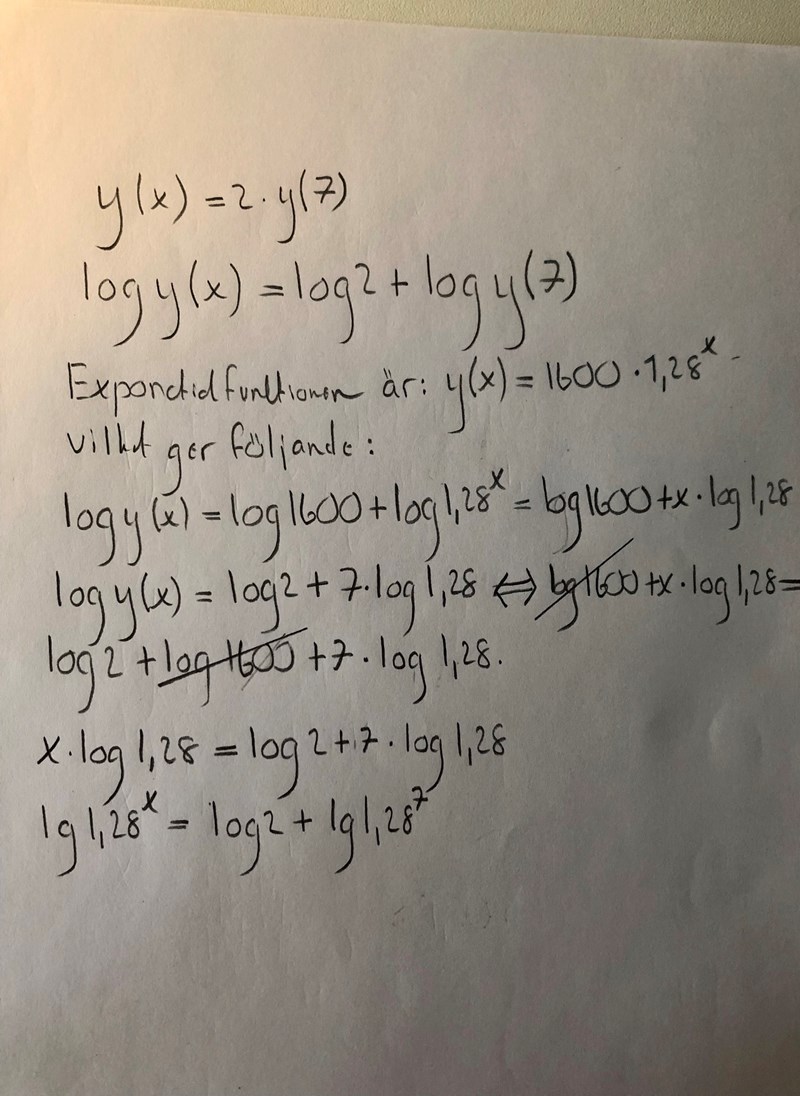 y(x) = 2 · y(7)
log y(x) = log 2 + log y(7)
är: y(x) = 1600 · 1,28^x
ger följande:
log y(x) = log 1600 + log 1,28^x = log 1600 + x · log 1,28
log y(x) = log 2 + 7 · log 1,28 ⇔ log 1600 + x · log 1,28 =
log 2 + log 1600 + 7 · log 1,28.
x · log 1,28 = log 2 + 7 · log 1,28
lg 1,28^x = log 2 + lg 1,28^7